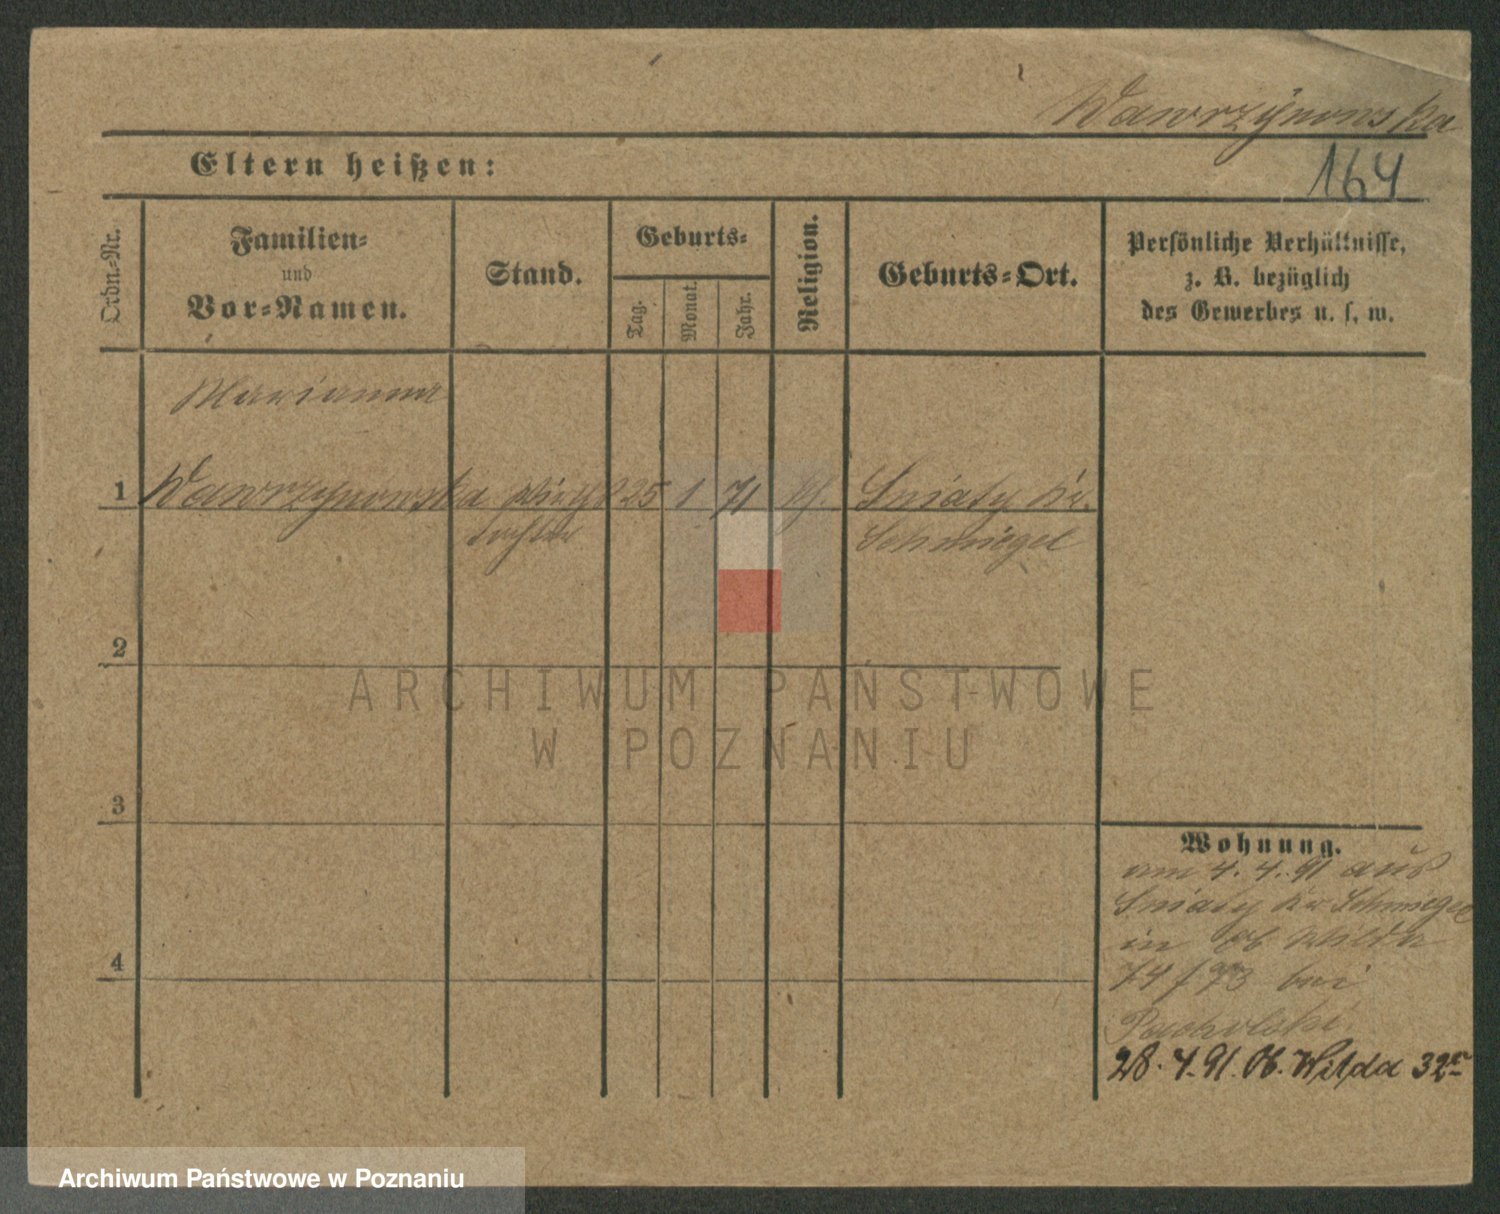 Wawrzynowska
164
Eltern heißen:
Ordn.-Nr.
Familien-
und
Vor-Namen.
Stand.
Geburts-
Tag.
Monat.
Jahr.
Religion.
Geburts-Ort.
Persönliche Verhältnisse,
z. B. bezüglich
des Gewerbes u. s. w.
Marianna
1 Wawrzynowska 25 1 71 Sniaty Kr.
tochter Schmiegel
2
3
4
Wohnung.
am 4. 4. 91 aus
Sniaty Kr Schmiegel
in Ob. Wilda
74/73 bei
28. 4. 91. Ob. Wilda 32
ARCHIWUM PAŃSTWOWE
W POZNANIU
Archiwum Państwowe w Poznaniu